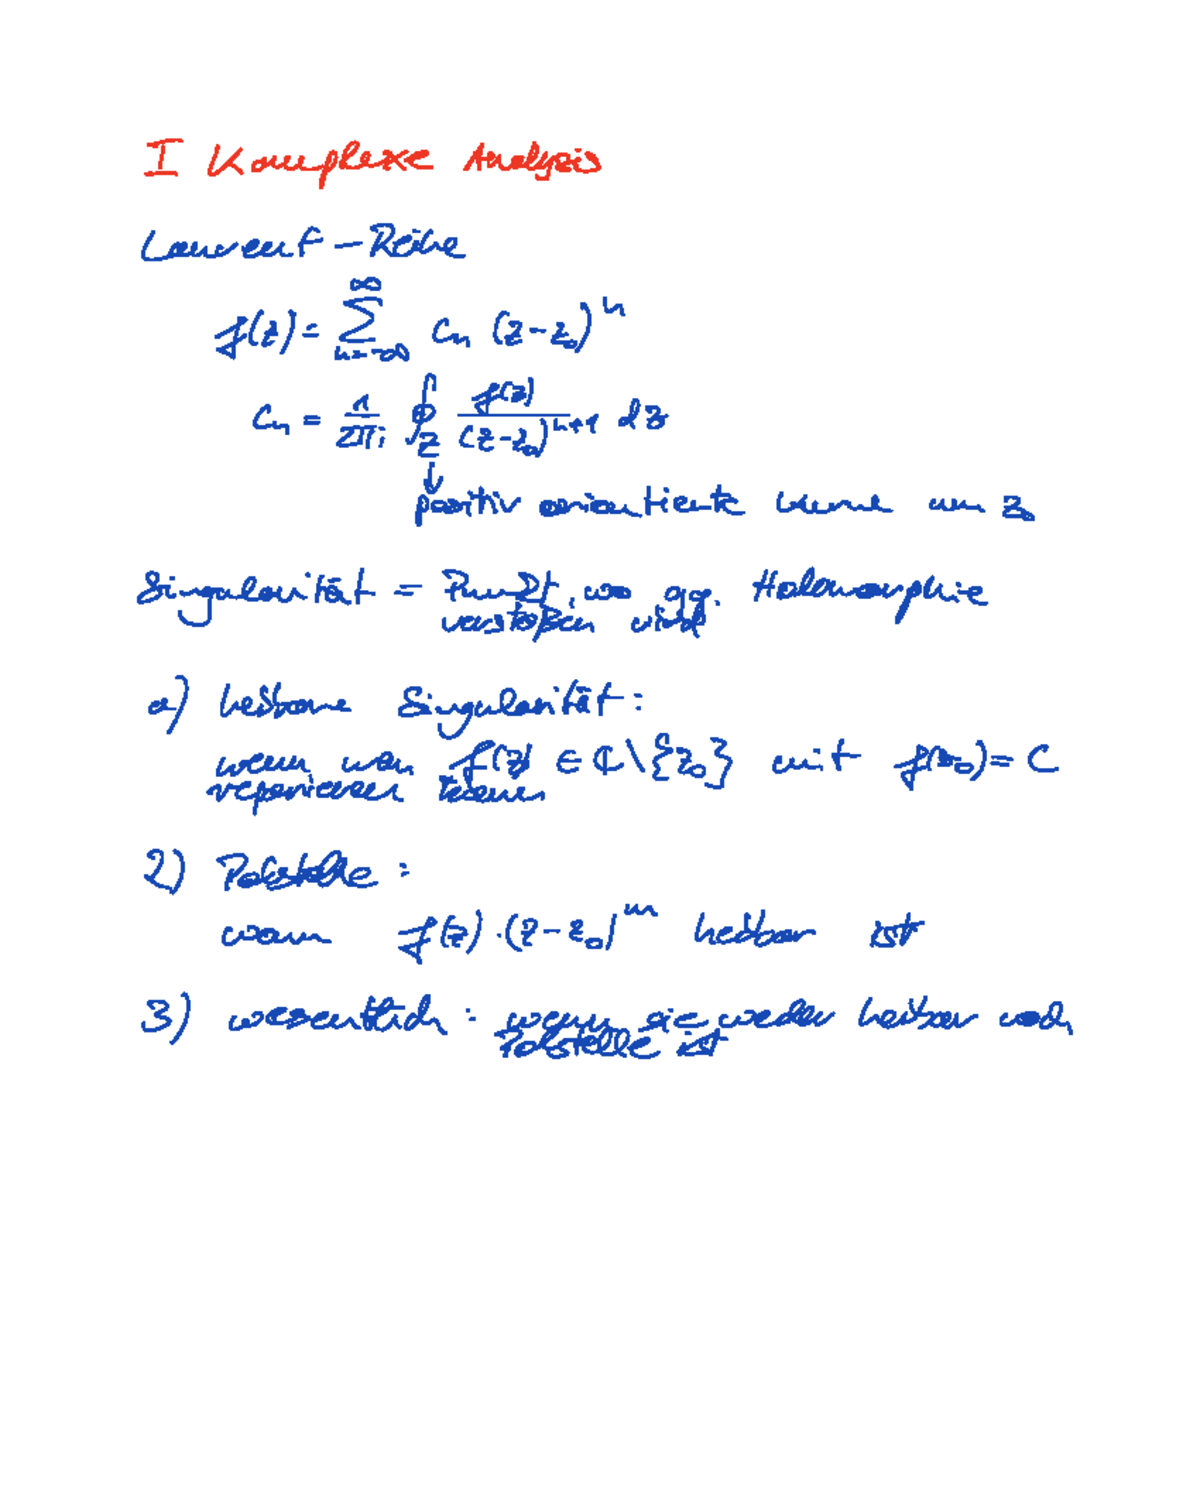 I Komplexe Analysis
Laurent - Reihe
f(z) = ∑_{n=-∞}^{∞} c_n (z-z_0)^n
c_n = 1/(2πi) ∮_Z f(z)/(z-z_0)^{n+1} dz
↓
positiv orientierte Kurve um z_0
Singularität = Punkt, wo gg. Holomorphie
verstoßen wird
a) hebbare Singularität:
wenn man f(z) ∈ ℂ\{z_0} mit f(z_0) = C
reparieren können
2) Polstelle:
wenn f(z)·(z-z_0)^m hebbar ist
3) wesentlich: wenn sie weder hebbar noch
Polstelle ist